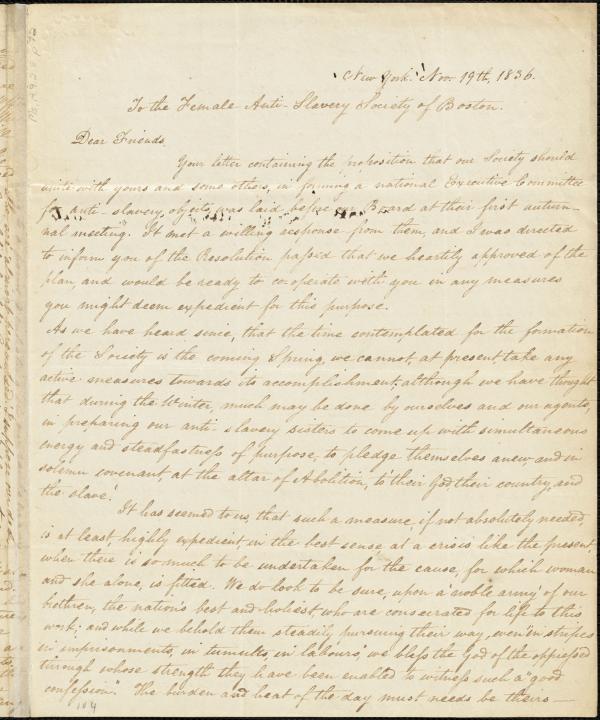 New York. Nov. 19th, 1836.
To the Female Anti-Slavery Society of Boston.
Dear Friends,
Your letter containing the proposition that our Society should
unite with yours and some others, in forming a national Executive Committee
for anti-slavery objects, was laid before our Board at their first autum-
nal meeting. It met a willing response from them, and I was directed
to inform you of the Resolution passed that we heartily approved of the
plan, and would be ready to co-operate with you in any measures
you might deem expedient for this purpose.
As we have heard since, that the time contemplated for the formation
of the Society is the coming Spring, we cannot, at present, take any
active measures towards its accomplishment, although we have thought
that during the Winter, much may be done by ourselves and our agents,
in preparing our anti slavery sisters to come up with simultaneous
energy and steadfastness of purpose, to pledge themselves anew, and in
solemn covenant, at the altar of Abolition, to their God, their country, and
the slave!
It has seemed to us, that such a measure, if not absolutely needed,
is at least, highly expedient, in the best sense, at a crisis like the present,
when there is so much to be undertaken for the cause, for which woman
and she alone, is fitted. We do look to be sure, upon a "noble army" of our
brethren, the nation's best and holiest, who are consecrated for life to this
work; and while we behold them steadily pursuing their way, even "in stripes
in imprisonments, in tumults, in labours," we bless the God of the oppressed
through whose strength they have been enabled to witness such a "good
confession". The burden and heat of the day must needs be theirs—
104